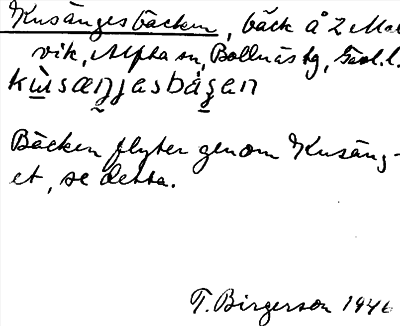 Kusängesbäcken, bäck å 2 Mal
vik, Alfta sn, Bollnäs tg, Gävl. l.
Bäcken flyter genom Kusäng-
et, se detta.
T. Birgerson 1946